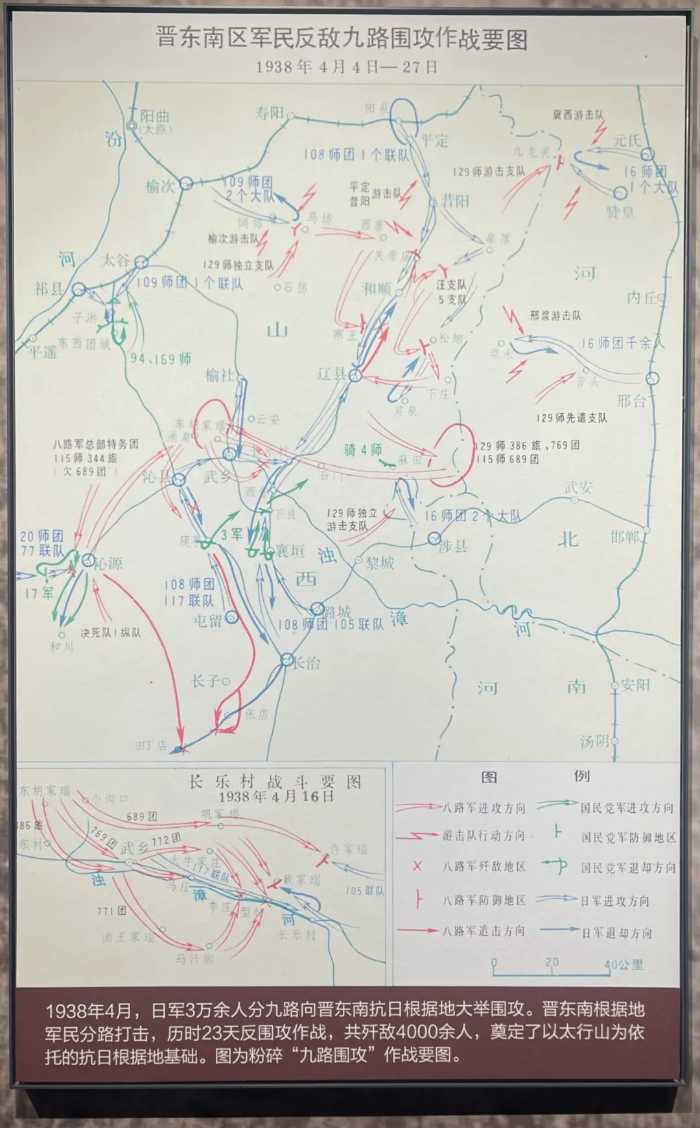 晋东南区军民反敌九路围攻作战要图
1938年4月4日—27日
阳曲
(太原)
寿阳
平定
汾
榆次
108师团1个联队
109师团
2个大队
平定
昔阳
游击队
昔阳
129师游击支队
冀西游击队
元氏
16师团
1个大队
赞皇
马坊
西寨
榆次游击队
129师独立支队
河
太谷
祁县
109师团1个联队
石拐
和顺
汪支队
5支队
河
内丘
子洪
东西团城
平遥
94、169师
山
榆社
辽县
松烟
邢浆游击队
16师团千余人
邢台
129师先遣支队
云安
八路军总部特务团
115师344旅
(欠689团)
沁县
武乡
骑4师
麻田
129师386旅、769团
115师689团
129师独立
游击支队
16师团2个大队
涉县
武安
北
邯郸
3军
襄垣
浊
黎城
西
20师团
77联队
沁源
17军
决死队1纵队
和川
108师团
117联队
屯留
潞城
108师团105联队
漳
河
长治
长子
张店
河
南
安阳
汤阴
长乐村战斗要图
1938年4月16日
689团
769团
772团
武乡
马庄
117联队
105联队
浊
漳
河
771团
长乐村
图例
八路军进攻方向
国民党军进攻方向
游击队行动方向
国民党军防御地区
八路军歼敌地区
国民党军退却方向
八路军防御地区
日军进攻方向
八路军追击方向
日军退却方向
0 20 40公里
1938年4月，日军3万余人分九路向晋东南抗日根据地大举围攻。晋东南根据地
军民分路打击，历时23天反围攻作战，共歼敌4000余人，奠定了以太行山为依
托的抗日根据地基础。图为粉碎“九路围攻”作战要图。